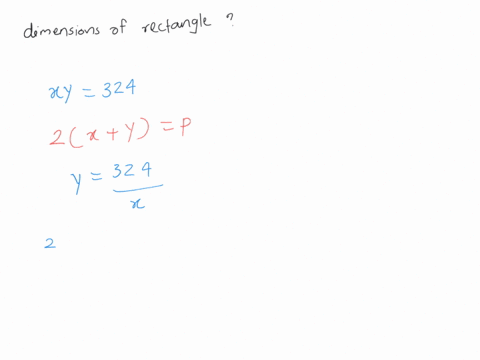 dimensions of rectangle ?
xy = 324
2(x + y) = P
y = 324/x
2